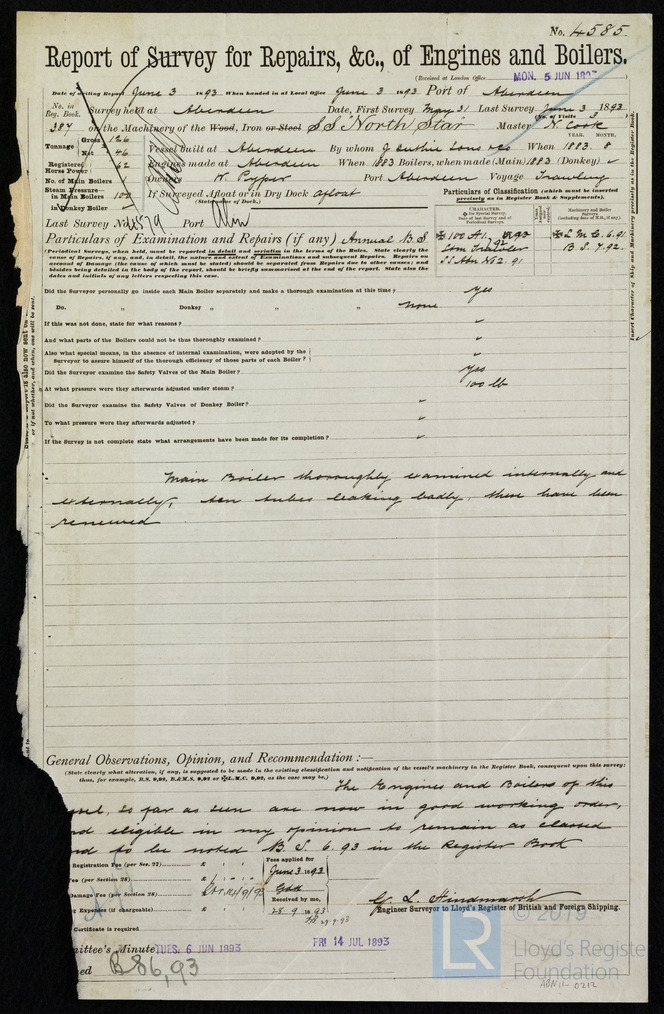 No. 4585
Report of Survey for Repairs, &c., of Engines and Boilers.
(Received at London Office MON. 5 JUN 1893)
Date of writing Report June 3 1893 When handed in at Local Office June 3 1893 Port of Aberdeen
No. in Reg. Book. Survey held at Aberdeen Date, First Survey May 31 Last Survey June 3 1893
(No. of Visits 3)
387 on the Machinery of the Wood, Iron or Steel SS North Star Master N. Cook
Tonnage Gross 126
Net 46
Vessel built at Aberdeen By whom J Duthie Sons & Co When 1883. 8
YEAR. MONTH.
Registered Horse Power 62 Engines made at Aberdeen When 1883 Boilers, when made (Main) 1883 (Donkey) ✓
No. of Main Boilers Owners W. Pyper Port Aberdeen Voyage Trawling
Steam Pressure—
in Main Boilers 100 If Surveyed Afloat or in Dry Dock afloat
(State name of Dock.)
in Donkey Boiler ✓
Particulars of Classification (which must be inserted precisely as in Register Book & Supplements).
Last Survey No. 4579 Port Abn
CHARACTER.
Machinery and Boiler Surveys
(including date of N.B., if any).
Particulars of Examination and Repairs (if any) Annual B.S
✠ 100 A1.
Stm Trawler
SS Abn No2. 91
✠ L.M.C. 6.91
B S. 7.92.
(Periodical Surveys, when held, must be reported in detail and seriatim in the terms of the Rules. State clearly the
cause of Repairs, if any, and, in detail, the nature and extent of Examinations and subsequent Repairs. Repairs on
account of Damage (the cause of which must be stated) should be separated from Repairs due to other causes; and
besides being detailed in the body of the report, should be briefly summarised at the end of the report. State also the
dates and initials of any letters respecting this case.
Did the Surveyor personally go inside each Main Boiler separately and make a thorough examination at this time? Yes
Do. " Donkey " " " none
If this was not done, state for what reasons? ✓
And what parts of the Boilers could not be thus thoroughly examined? ✓
Also what special means, in the absence of internal examination, were adopted by the
Surveyor to assure himself of the thorough efficiency of those parts of each Boiler? ✓
Did the Surveyor examine the Safety Valves of the Main Boiler? Yes
At what pressure were they afterwards adjusted under steam? 100 lb
Did the Surveyor examine the Safety Valves of Donkey Boiler? ✓
To what pressure were they afterwards adjusted? ✓
If the Survey is not complete state what arrangements have been made for its completion? ✓
Main Boiler thoroughly examined internally and
externally, ten tubes leaking badly, these have been
renewed
General Observations, Opinion, and Recommendation :—
(State clearly what alteration, if any, is suggested to be made in the existing classification and notification of the vessel's machinery in the Register Book, consequent upon this survey:
thus, for example, B.S. 9,92, B.&M.S. 9,92 or ✠L.M.C. 9,92, as the case may be.)
The Engines and Boilers of this
sel, so far as seen are now in good working order,
nd eligible in my opinion to remain as classed
nd to be noted B. S. 6.93 in the Register Book
Registration Fee (per Sec. 27) £ : :
Fee (per Section 28) £ : :
Damage Fee (per Section 28) £
g Expenses (if chargeable) £ : :
Fees applied for
June 3 1893
Received by me,
28. 9. 1893
29.9.93
G. L. Hindmarsh
Engineer Surveyor to Lloyd's Register of British and Foreign Shipping.
Certificate is required
mittee's Minute TUES. 6 JUN 1893
FRI 14 JUL 1893
ed B S 6,93
Insert Character of Ship and Machinery precisely as in the Register Book.
© 2019
LR
Lloyd's Register
Foundation
ABN11-0212